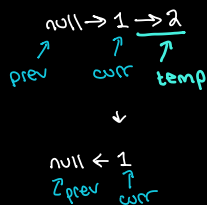 null → 1 → 2
prev curr temp
↓
null ← 1
prev curr